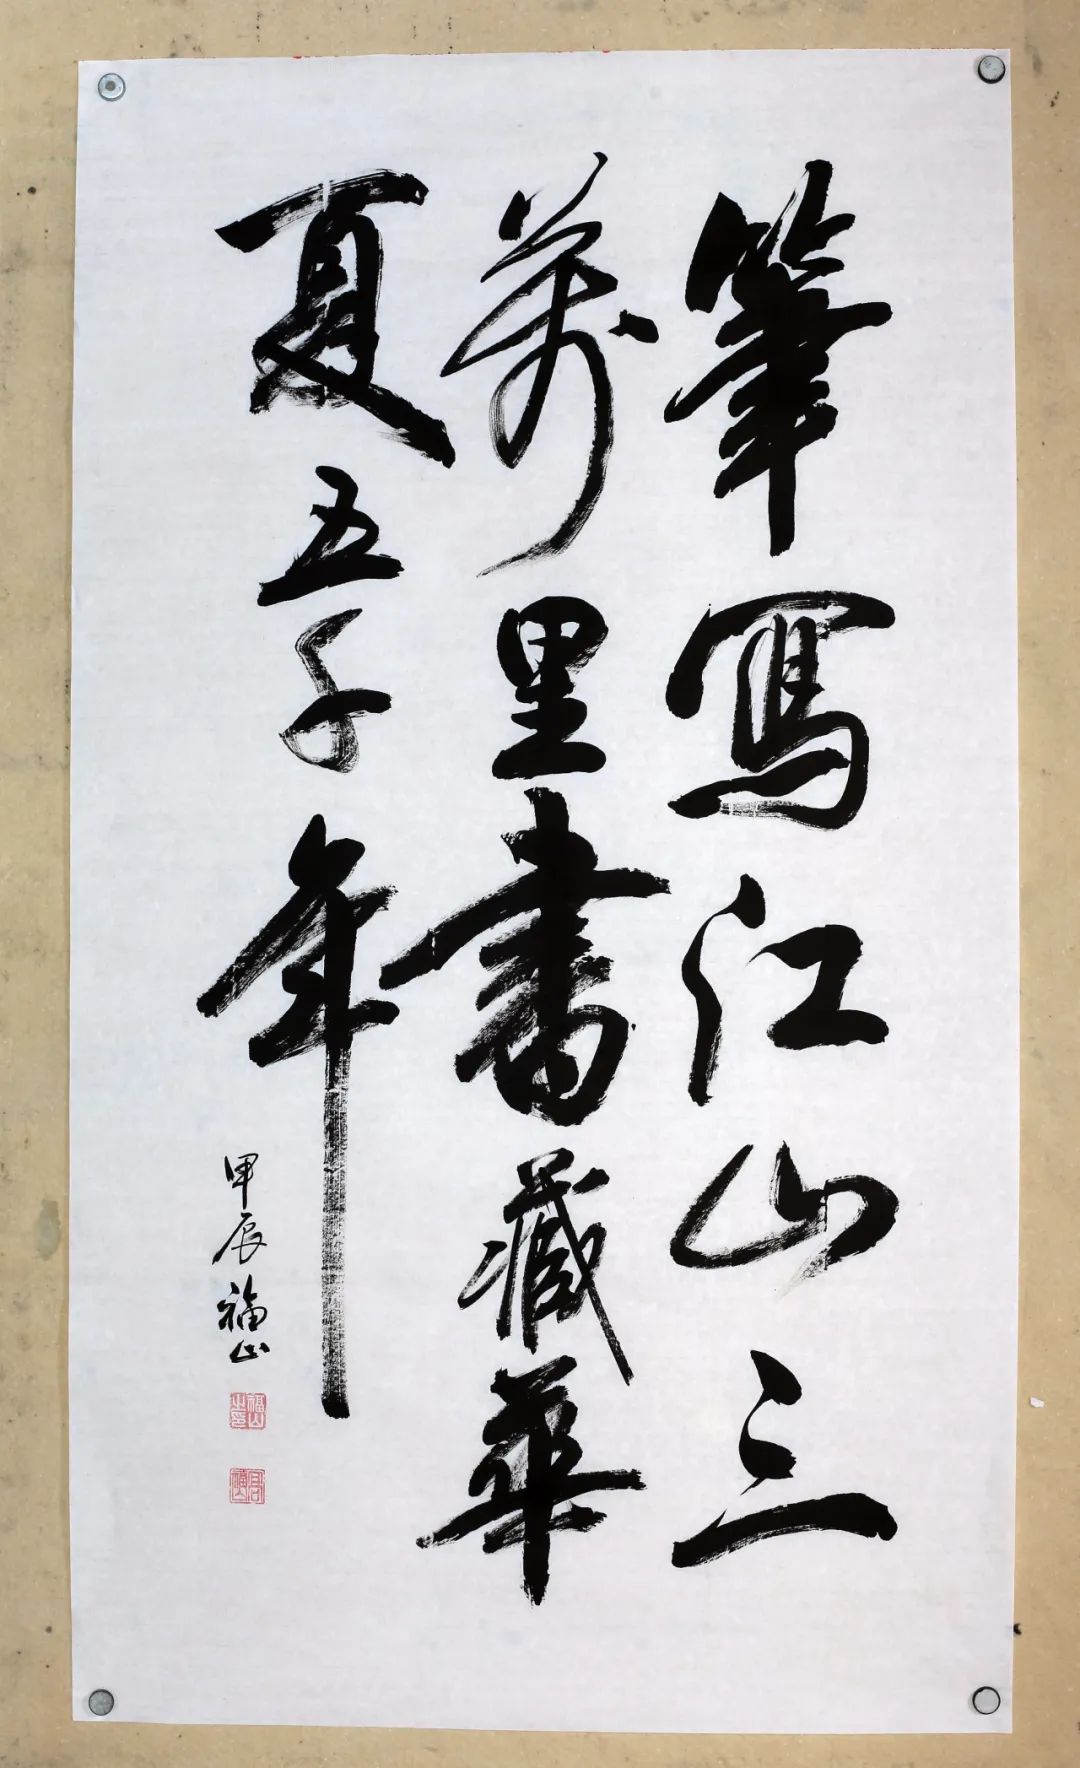 筆寫江山三
萬里書藏華
夏五千年
甲辰福山
福山之印